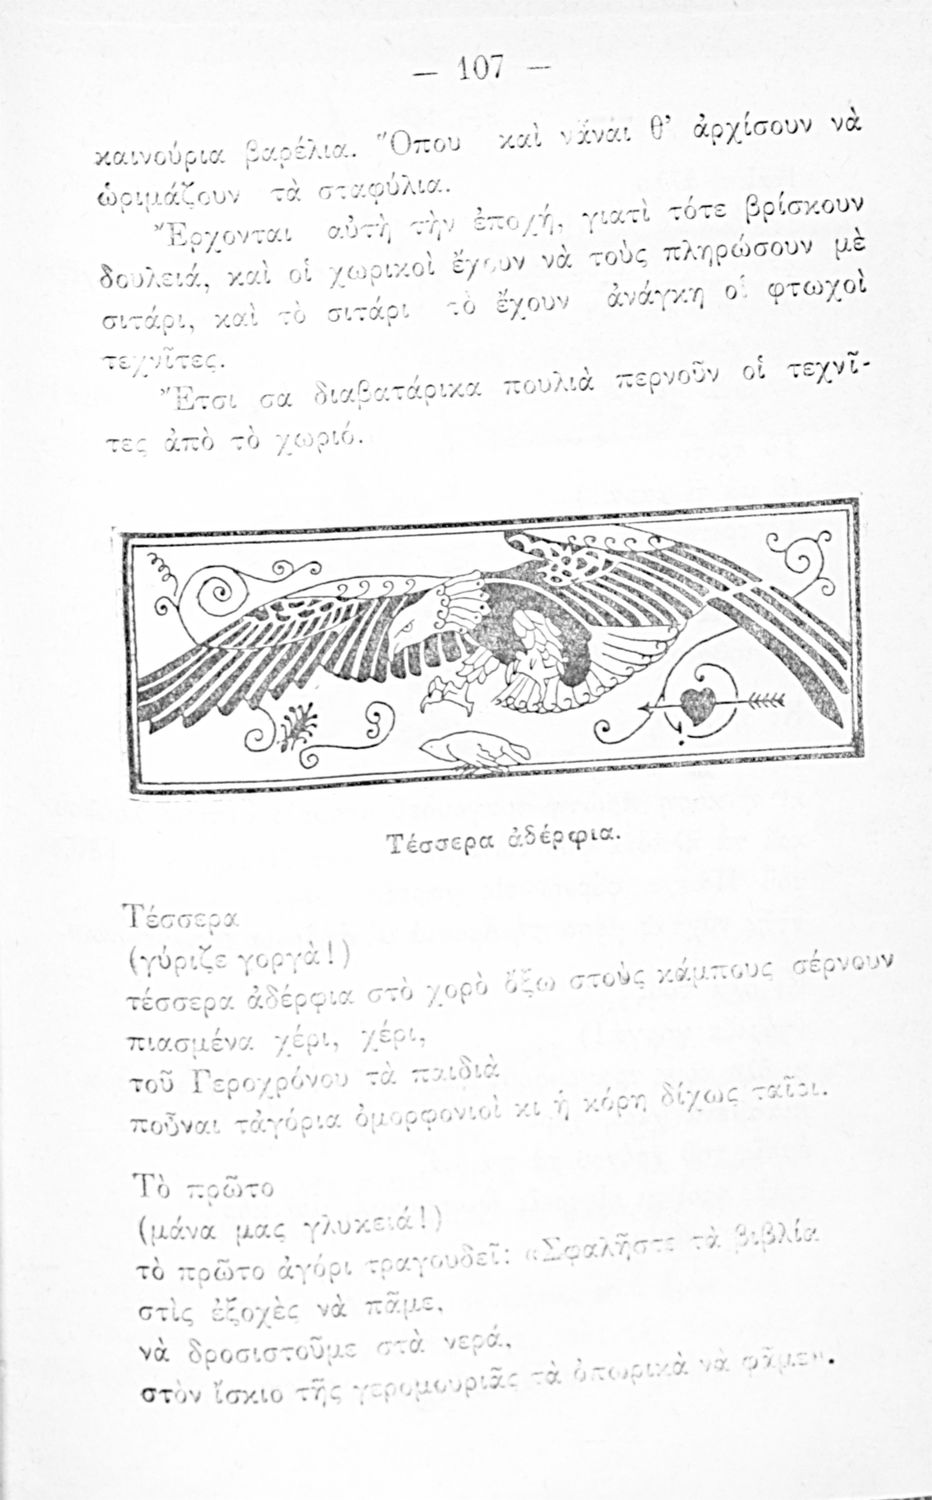 — 107 —
καινούρια βαρέλια. Ὅπου καὶ νἆναι θ’ ἀρχίσουν νὰ
ὡριμάζουν τὰ σταφύλια.
Ἔρχονται αὐτὴ τὴν ἐποχή, γιατὶ τότε βρίσκουν
δουλειά, καὶ οἱ χωρικοὶ ἔχουν νὰ τοὺς πληρώσουν μὲ
σιτάρι, καὶ τὸ σιτάρι τὸ ἔχουν ἀνάγκη οἱ φτωχοὶ
τεχνῖτες.
Ἔτσι σα διαβατάρικα πουλιὰ περνοῦν οἱ τεχνῖ-
τες ἀπὸ τὸ χωριό.
Τέσσερα ἀδέρφια.
Τέσσερα
(γύριζε γοργὰ!)
τέσσερα ἀδέρφια στὸ χορὸ ὄξω στοὺς κάμπους σέρνουν
πιασμένα χέρι, χέρι,
τοῦ Γεροχρόνου τὰ παιδιὰ
ποὖναι τἀγόρια ὀμορφονιοὶ κι ἡ κόρη δίχως ταῖρι.
Τὸ πρῶτο
(μάνα μας γλυκειά!)
τὸ πρῶτο ἀγόρι τραγουδεῖ: «Σφαλῆστε τὰ βιβλία
στὶς ἐξοχὲς νὰ πᾶμε,
νὰ δροσιστοῦμε στὰ νερά,
στὸν ἴσκιο τῆς γερομουριᾶς τὰ ὀπωρικὰ νὰ φᾶμε».